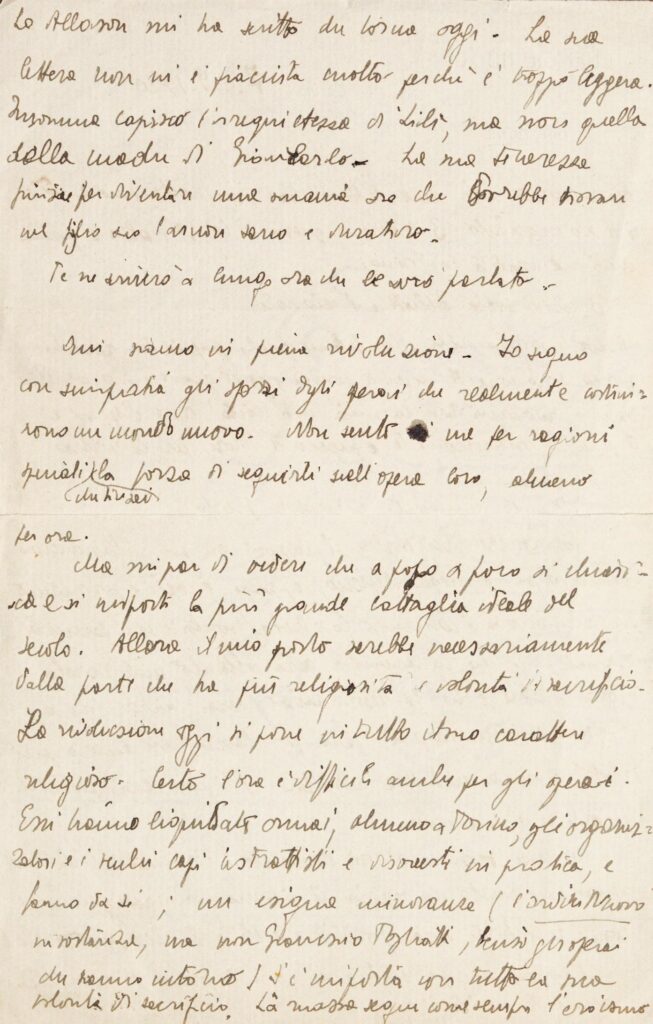 La Allason mi ha scritto che torna oggi. La sua
lettera non mi è piaciuta molto perché è troppo leggera.
Insomma capisco l'irrequietezza di Lidi, ma non quella
della madre di Giancarlo. La sua tenerezza
finisce per diventare una smania ora che vorrebbe trovare
nel figlio suo l'amore sano e duraturo.
Te ne scriverò a lungo ora che le avrò parlato.
Qui siamo in piena rivoluzione. Io seguo
con simpatia gli sforzi degli operai che realmente costrui-
scono un mondo nuovo. Non sento in me per ragioni
la forza di seguirli nell'opera loro, almeno
che tu sai
per ora.
Ma mi par di vedere che a poco a poco si chiari-
sca e si imposti la più grande battaglia ideale del
secolo. Allora il mio posto sarebbe necessariamente
dalla parte che ha più religiosità e volontà di sacrificio.
La rivoluzione oggi si pone in tutto il suo carattere
religioso. Certo l'ora è difficile anche per gli operai.
Essi hanno liquidato ormai, almeno a Torino, gli organiz-
zatori e i vecchi capi astrattisti e disonesti in pratica, e
fanno da sé; un'esigua minoranza (l'Ordine Nuovo
in sostanza, ma non Gramsci o Togliatti, bensì gli operai
che hanno intorno) s'è imposta con tutta la sua
volontà di sacrificio. La massa segue come sempre l'eroismo